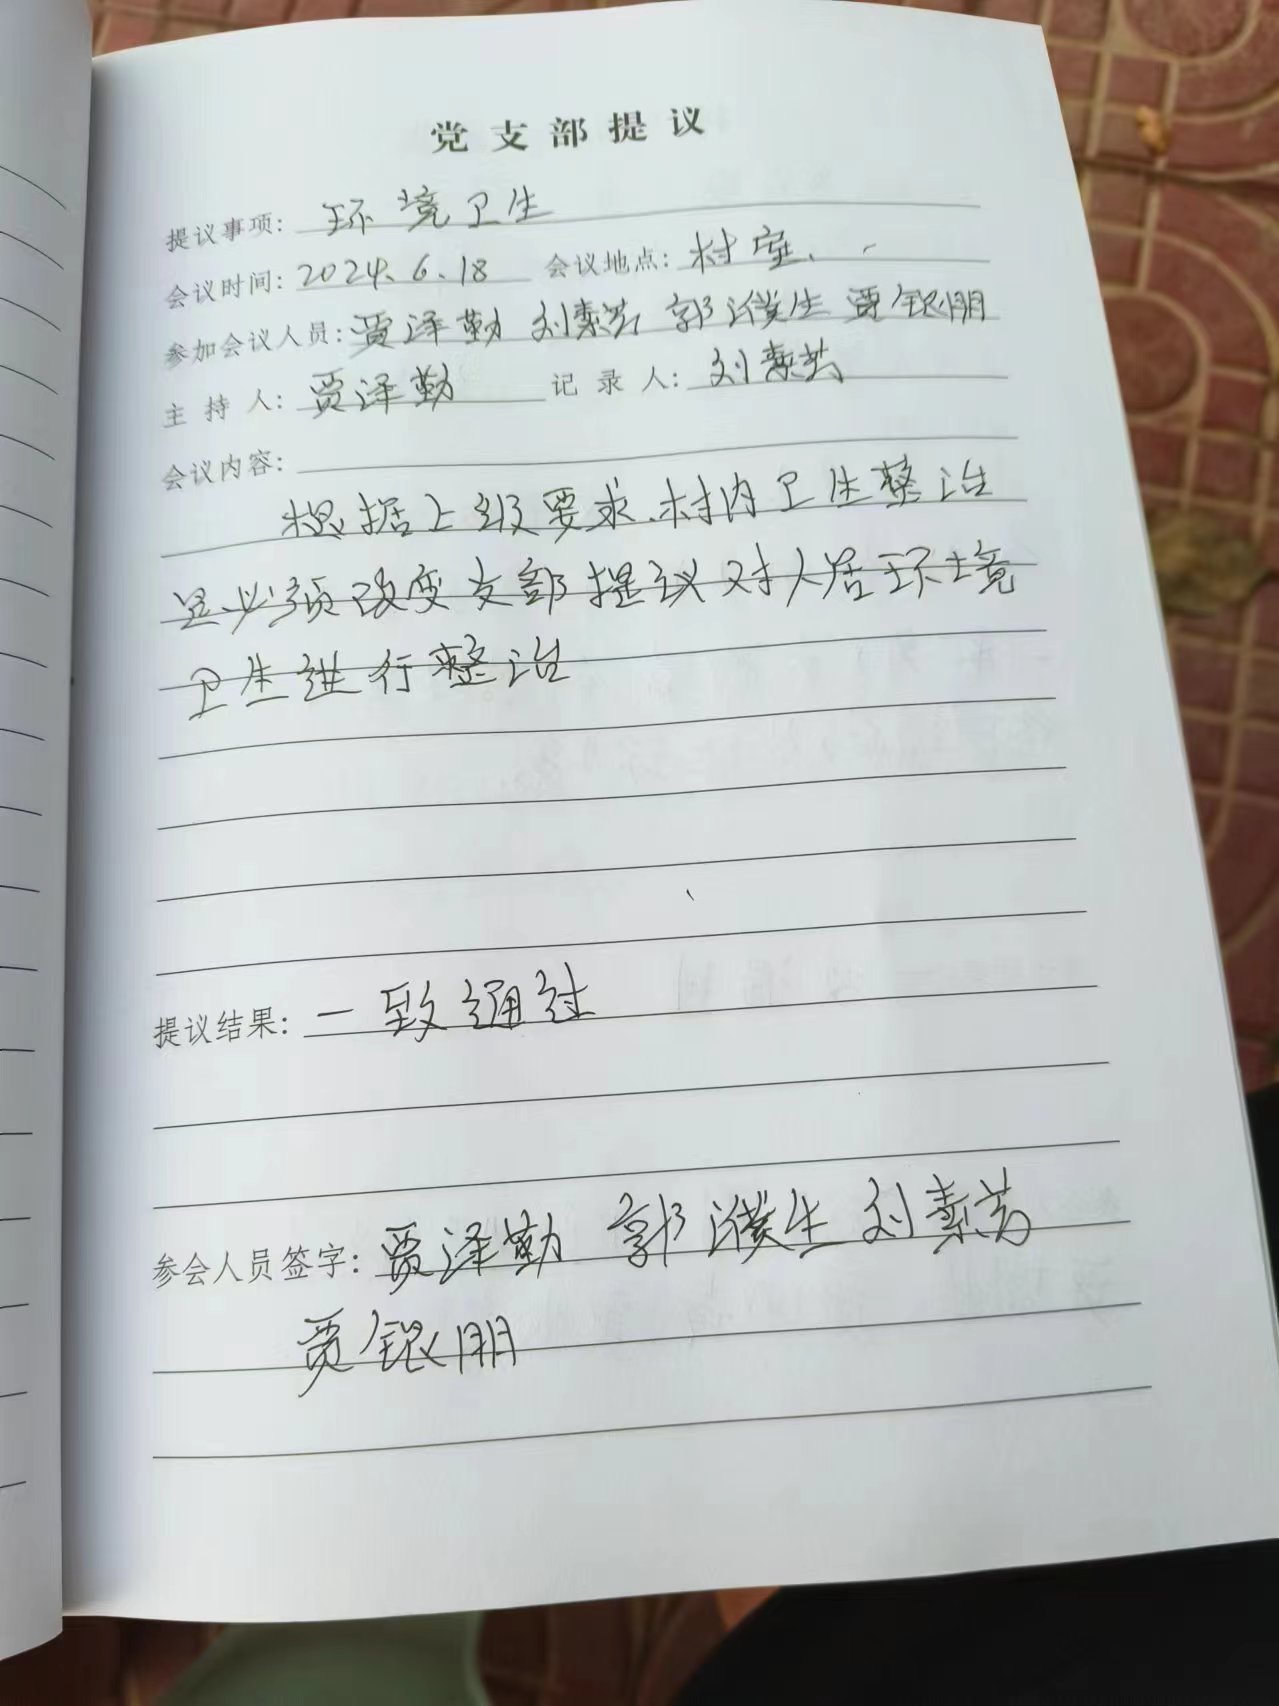 党支部提议
提议事项: 环境卫生
会议时间: 2024、6、18 会议地点: 村室、
参加会议人员: 贾泽勤 刘素芳 郭濮生 贾银朋
主持人: 贾泽勤 记录人: 刘素芳
会议内容:
根据上级要求、村内卫生整治
是必须改变支部提议对人居环境
卫生进行整治
提议结果: 一致通过
参会人员签字: 贾泽勤 郭濮生 刘素芳
贾银朋